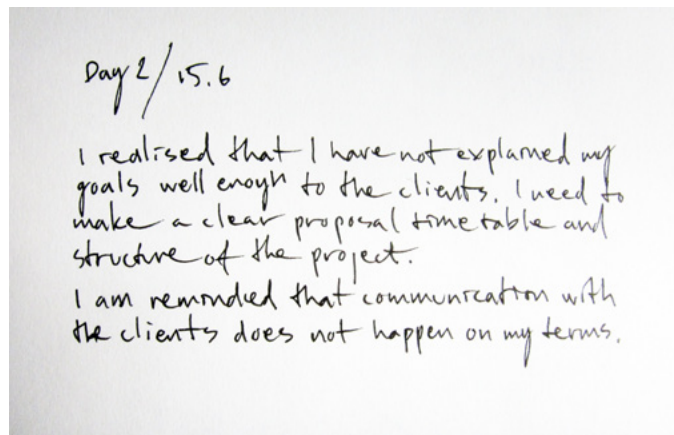 Day 2/15.6
I realised that I have not explained my
goals well enough to the clients. I need to
make a clear proposal timetable and
structure of the project.
I am reminded that communication with
the clients does not happen on my terms.